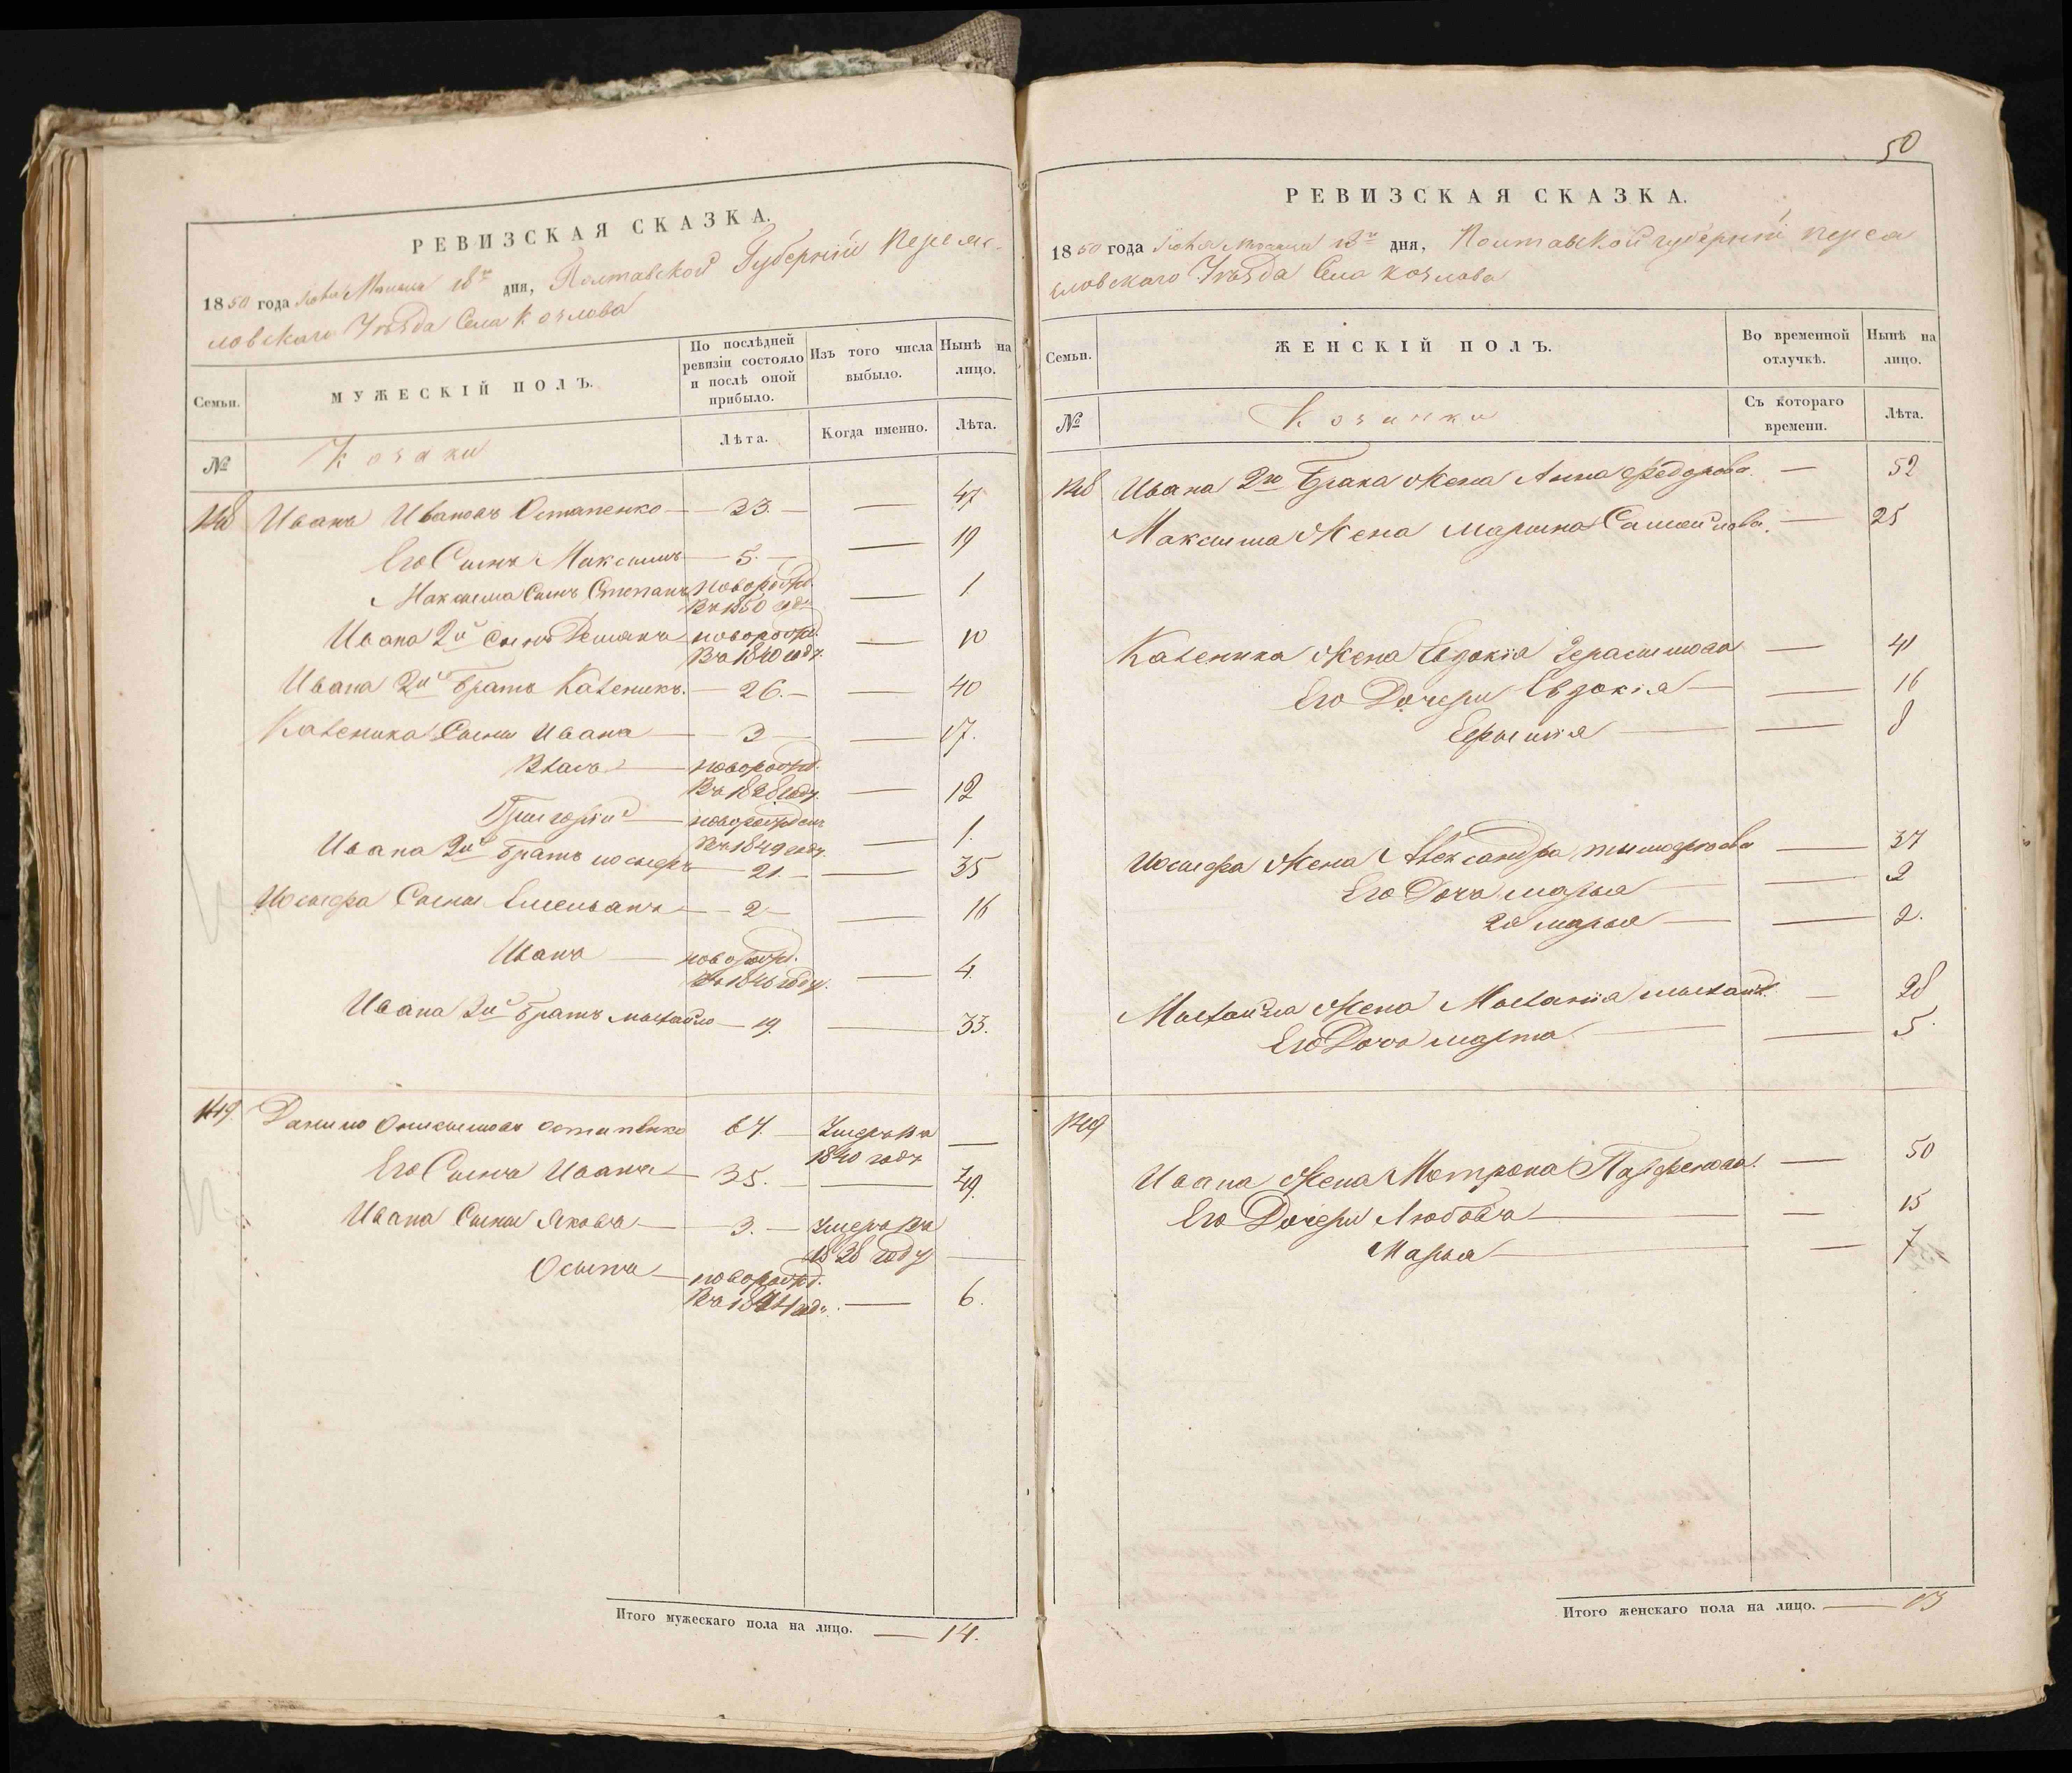 РЕВИЗСКАЯ СКАЗКА.
1850 года Мѣсяца 18го дня, Полтавской Губерніи Переяс-
ловскаго Уѣзда Села Козлова
Семьи.
МУЖЕСКІЙ ПОЛЪ.
По послѣдней ревизіи состояло и послѣ оной прибыло.
Изъ того числа выбыло.
Нынѣ на лицо.
№
Козаки
Лѣта.
Когда именно.
Лѣта.
148 Иванъ Ивановъ Остапенко — 33. — 47
Его Сынъ Максимъ — 5. — 19
Максима Сынъ Степанъ новорожд. Въ 1850 году — 1
Ивана 2й сынъ Демянъ новорожд. Въ 1840 году — 10
Ивана 2й братъ Каленикъ. — 26. — 40
Каленика Сыны Иванъ — 3 — 17.
Власъ — новорожд. Въ 1838 году — 12
Григорій — новорожден Въ 1849 году — 1.
Ивана 3й братъ Иосифъ — 21. — 35
Иосифа Сыны Емельянъ — 2 — 16
Иванъ — новорожд. Въ 1846 году. — 4.
Ивана 4й братъ Михайло — 19. — 33.
149. Данило Онисимовъ Остапенко 67. — Умеръ въ 1840 году —
Его Сынъ Иванъ — 35. — 49.
Ивана Сыны Яковъ — 3. — Умеръ въ 1838 году —
Осипъ — новорожд. Въ 1844 году. — 6.
Итого мужескаго пола на лицо. — 14.
50
РЕВИЗСКАЯ СКАЗКА.
1850 года Мѣсяца 18го дня, Полтавской губерніи Перея
словскаго Уѣзда Села Козлова
Семьи.
ЖЕНСКІЙ ПОЛЪ.
Во временной отлучкѣ.
Нынѣ на лицо.
№
Козачки
Съ котораго времени.
Лѣта.
148 Ивана 2го брака Жена Анна Федорова — 52
Максима Жена Марина Самойлова. — 25
Каленика Жена Евдокія Герасимова — 41
Его Дочери Евдокія — 16
Ефимія — 8
Иосифа Жена Александра Тимофеева — 37
Его Дочь Марья — 2
2я Марья — 2.
Михайла Жена Меланія — 28
Его Дочь Марта — 5.
149
Ивана Жена Мотрона Парфенова. — 50
Его Дочери Любовь — 15
Марья — 7
Итого женскаго пола на лицо. — 13